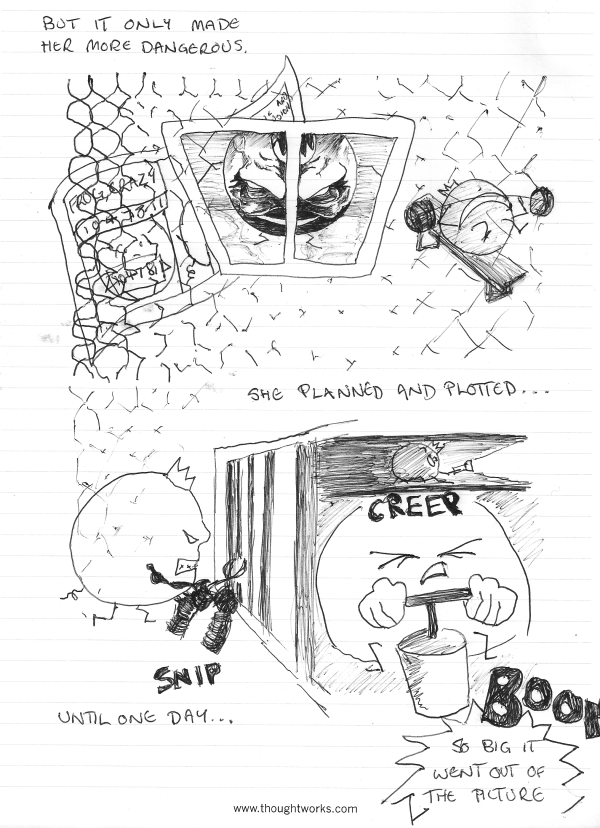 BUT IT ONLY MADE
HER MORE DANGEROUS.
SHE PLANNED AND PLOTTED...
CREEP
SNIP
UNTIL ONE DAY...
BOOM
SO BIG IT
WENT OUT OF
THE PICTURE
www.thoughtworks.com